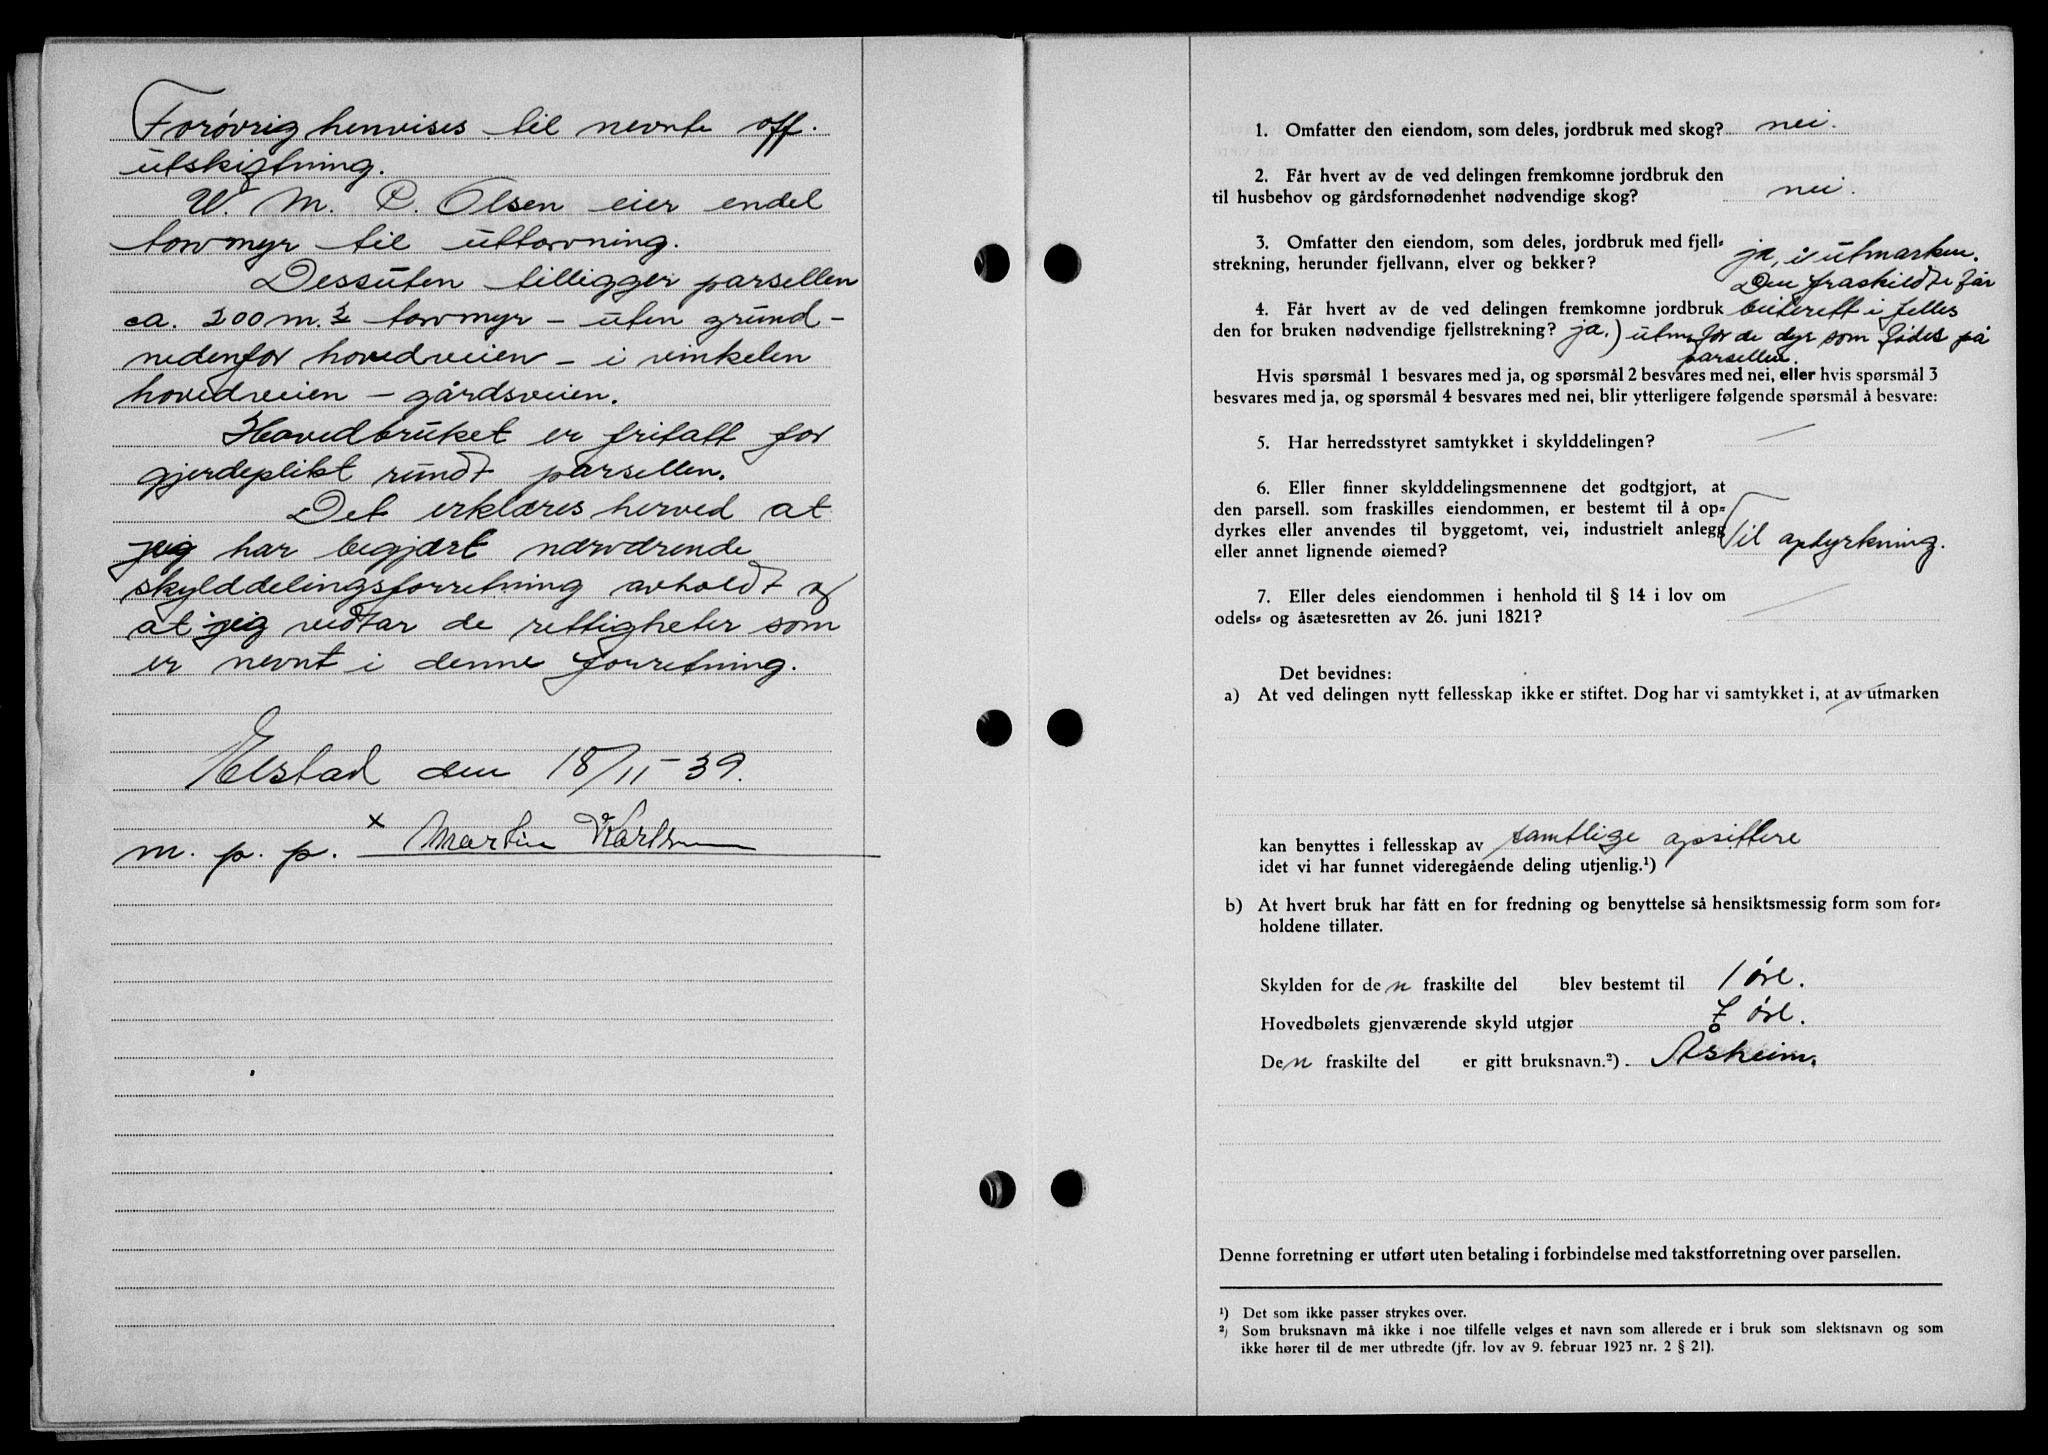 Forøvrig henvises til nevnte off.
utskiftning.
W. M. P. Olsen eier endel
torvmyr til uttorvning.
Dessuten tilligger parsellen
ca. 200 m.² torvmyr – uten grund –
nedenfor hovedveien – i vinkelen
hovedveien – gårdsveien.
Hovedbruket er fritatt for
gjerdeplikt rundt parsellen.
Det erklæres herved at
jeg har begjært nærværende
skylddelingsforretning avholdt og
at jeg vedtar de rettigheter som
er nevnt i denne forretning.
Elstad den 18/11-39.
m. p. p. x Martin Karlsen
1. Omfatter den eiendom, som deles, jordbruk med skog? nei.
2. Får hvert av de ved delingen fremkomne jordbruk den
til husbehov og gårdsfornødenhet nødvendige skog? nei.
3. Omfatter den eiendom, som deles, jordbruk med fjell-
strekning, herunder fjellvann, elver og bekker? ja, i utmarken.
Den fraskildte får
4. Får hvert av de ved delingen fremkomne jordbruk beiterett i felles
den for bruken nødvendige fjellstrekning? ja.) utm. for de dyr som fødes på
parsellen.
Hvis spørsmål 1 besvares med ja, og spørsmål 2 besvares med nei, eller hvis spørsmål 3
besvares med ja, og spørsmål 4 besvares med nei, blir ytterligere følgende spørsmål å besvare:
5. Har herredsstyret samtykket i skylddelingen? —
6. Eller finner skylddelingsmennene det godtgjort, at
den parsell. som fraskilles eiendommen, er bestemt til å op-
dyrkes eller anvendes til byggetomt, vei, industrielt anlegg
eller annet lignende øiemed? Til opdyrkning.
7. Eller deles eiendommen i henhold til § 14 i lov om
odels- og åsætesretten av 26. juni 1821? —
Det bevidnes:
a) At ved delingen nytt fellesskap ikke er stiftet. Dog har vi samtykket i, at av utmarken
kan benyttes i fellesskap av samtlige opsittere
idet vi har funnet videregående deling utjenlig.¹)
b) At hvert bruk har fått en for fredning og benyttelse så hensiktsmessig form som for-
holdene tillater.
Skylden for den fraskilte del blev bestemt til 1 øre.
Hovedbølets gjenværende skyld utgjør 7 øre.
Den fraskilte del er gitt bruksnavn.²) Åsheim.
Denne forretning er utført uten betaling i forbindelse med takstforretning over parsellen.
¹) Det som ikke passer strykes over.
²) Som bruksnavn må ikke i noe tilfelle velges et navn som allerede er i bruk som slektsnavn og som
ikke hører til de mer utbredte (jfr. lov av 9. februar 1923 nr. 2 § 21).